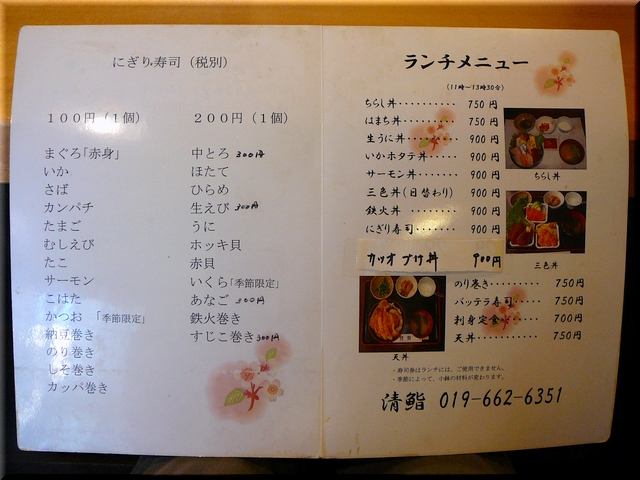 にぎり寿司（税別）
１００円（１個）
まぐろ「赤身」
いか
さば
カンパチ
たまご
むしえび
たこ
サーモン
こはた
かつお 「季節限定」
納豆巻き
のり巻き
しそ巻き
カッパ巻き
２００円（１個）
中とろ 300円
ほたて
ひらめ
生えび 300円
うに
ホッキ貝
赤貝
いくら「季節限定」
あなご 300円
鉄火巻き
すじこ巻き 300円
ランチメニュー
(11時～13時30分)
ちらし丼･･････････ 750円
はまち丼･･････････ 750円
生うに丼･･････････ 900円
いかホタテ丼･･････ 900円
サーモン丼････････ 900円
三色丼(日替わり) 900円
鉄火丼 ････････ 900円
にぎり寿司････････ 900円
カツオ づけ丼 900円
ちらし丼
三色丼
のり巻き･･････････ 750円
バッテラ寿司･･････ 750円
刺身定食･･････････ 700円
天丼･･････････････ 750円
天丼
・寿司券はランチには、ご使用できません。
・季節によって、小鉢の材料が変わります。
清鮨 019-662-6351